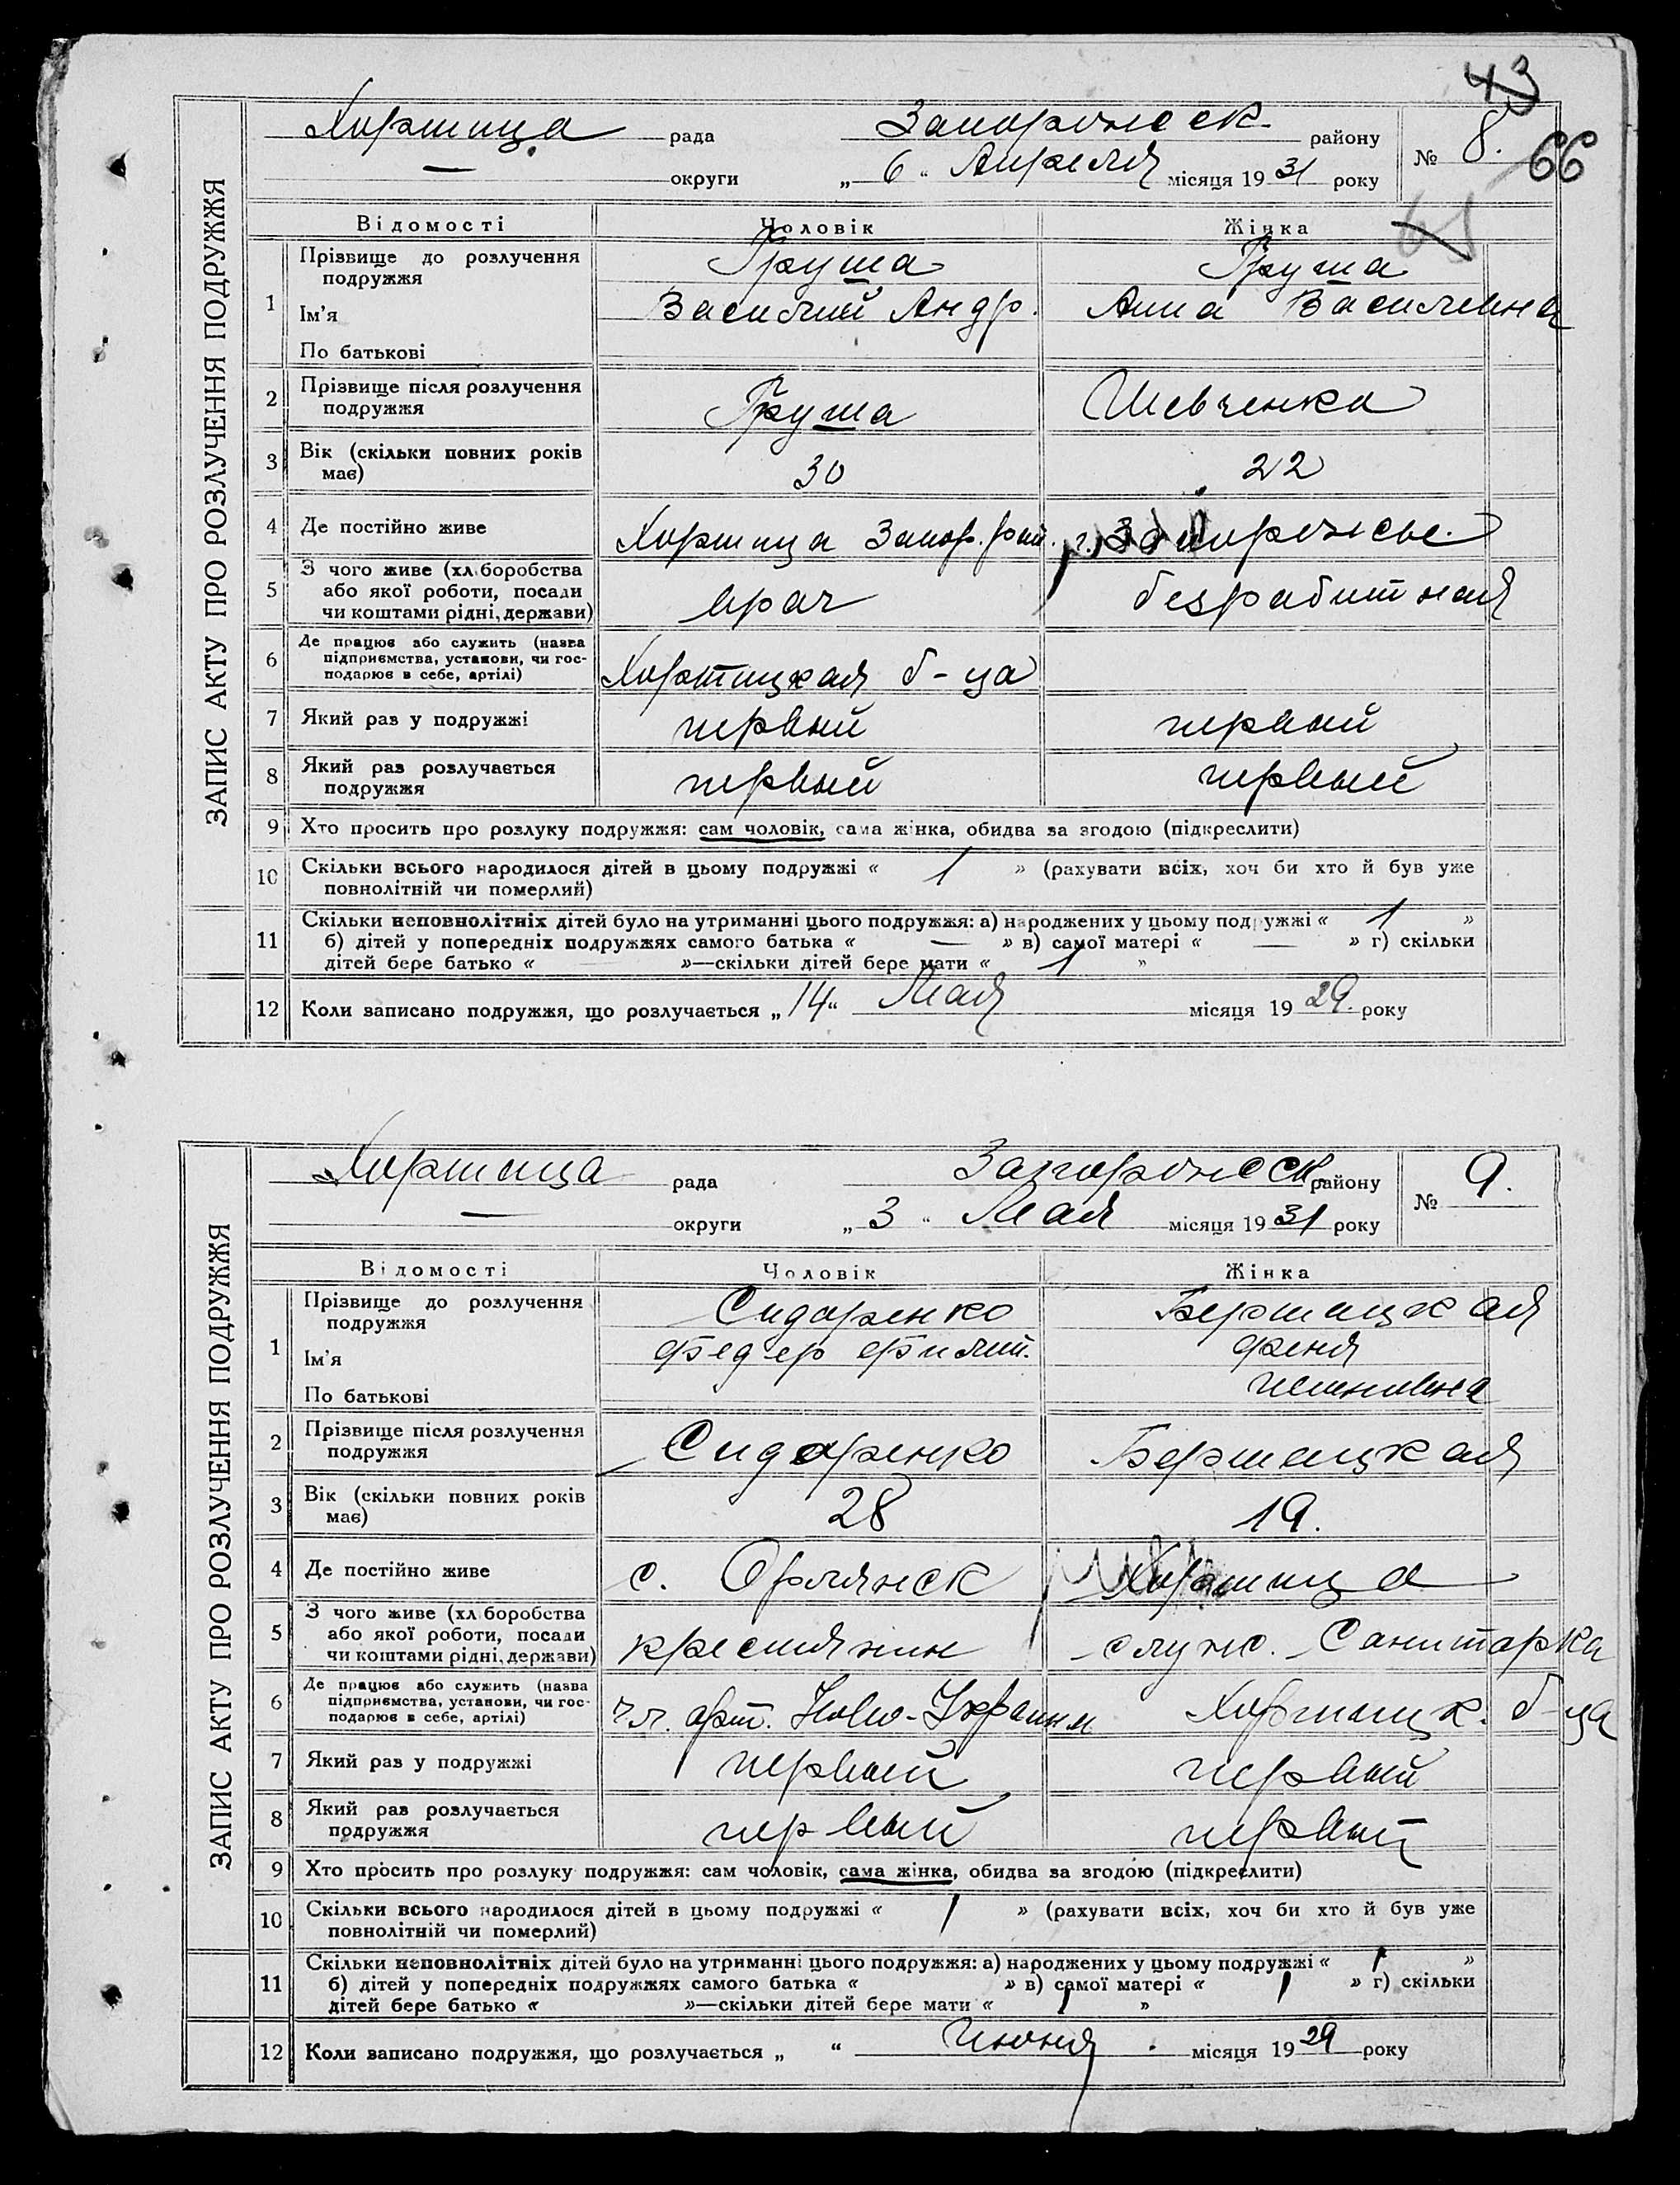 43
66
ЗАПИС АКТУ ПРО РОЗЛУЧЕННЯ ПОДРУЖЖЯ
Хортица рада Запорожск. району № 8.
— округи „ 6 “ Апреля місяця 19 31 року
Відомості Чоловік Жінка
1 Прізвище до розлучення подружжя Груша Груша
Ім'я Василий Андр. Анна Васильевна
По батькові
2 Прізвище після розлучення подружжя Груша Шевченко
3 Вік (скільки повних років має) 30 22
4 Де постійно живе Хортица Запор. рай. г. Запорожье.
5 З чого живе (хліборобства або якої роботи, посади чи коштами рідні, держави) врач безработная
6 Де працює або служить (назва підприємства, установи, чи господарює в себе, артілі) Хортицкая б-ца
7 Який раз у подружжі первый первый
8 Який раз розлучається подружжя первый первый
9 Хто просить про розлуку подружжя: сам чоловік, сама жінка, обидва за згодою (підкреслити)
10 Скільки всього народилося дітей в цьому подружжі « 1 » (рахувати всіх, хоч би хто й був уже
повнолітній чи померлий)
11 Скільки неповнолітніх дітей було на утриманні цього подружжя: а) народжених у цьому подружжі « 1 »
б) дітей у попередніх подружжях самого батька « — » в) самої матері « — » г) скільки
дітей бере батько « — »—скільки дітей бере мати « 1 »
12 Коли записано подружжя, що розлучається „ 14 “ Мая місяця 19 29. року
ЗАПИС АКТУ ПРО РОЗЛУЧЕННЯ ПОДРУЖЖЯ
Хортица рада Запорожск району № 9.
— округи „ 3 “ Мая місяця 19 31 року
Відомості Чоловік Жінка
1 Прізвище до розлучення подружжя Сидоренко Бершацкая
Ім'я Федер Филип. Феня
По батькові
2 Прізвище після розлучення подружжя Сидоренко Бершацкая
3 Вік (скільки повних років має) 28 19.
4 Де постійно живе с. Орлянск Хортица
5 З чого живе (хліборобства або якої роботи, посади чи коштами рідні, держави) крестянин служ. Санитарка
6 Де працює або служить (назва підприємства, установи, чи господарює в себе, артілі) чл. арт. Ново-Украин Хортицк. б-ца
7 Який раз у подружжі первый первый
8 Який раз розлучається подружжя первый первый
9 Хто просить про розлуку подружжя: сам чоловік, сама жінка, обидва за згодою (підкреслити)
10 Скільки всього народилося дітей в цьому подружжі « 1 » (рахувати всіх, хоч би хто й був уже
повнолітній чи померлий)
11 Скільки неповнолітніх дітей було на утриманні цього подружжя: а) народжених у цьому подружжі « 1 »
б) дітей у попередніх подружжях самого батька « » в) самої матері « 1 » г) скільки
дітей бере батько « »—скільки дітей бере мати « 1 »
12 Коли записано подружжя, що розлучається „ “ Июня місяця 19 29 року